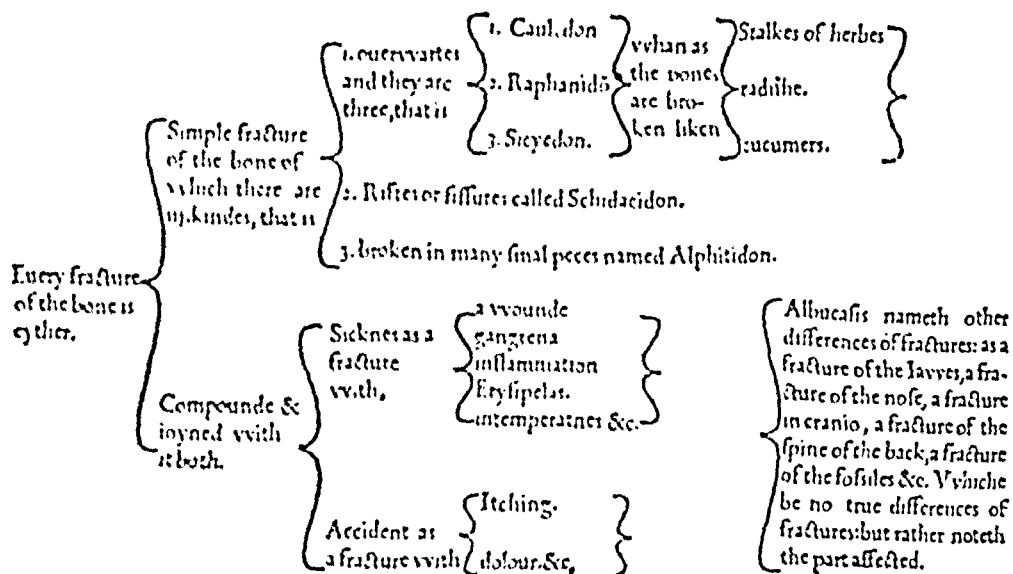 Euery fracture
of the bone is
eyther.
Simple fracture
of the bone of
vvhich there are
iij.kindes, that is
1. ouervvartes
and they are
three, that is
1. Cauledon
2. Raphanidō
3. Sicyedon.
vvhan as
the bones
are bro-
ken liken
Stalkes of herbes
radishe.
cucumers.
2. Riftes or fissures called Schidacidon.
3. broken in many smal peces named Alphitidon.
Compounde &
ioyned vvith
it both.
Sicknes as a
fracture
vvith,
a vvounde
gangrena
inflammation
Erysipelas.
intemperatnes &c.
Accident as
a fracture vvith
Itching.
dolour. &c,
Albucasis nameth other
differences of fractures: as a
fracture of the Iavves, a fra-
cture of the nose, a fracture
in cranio, a fracture of the
spine of the back, a fracture
of the fossiles &c. Vvhiche
be no true differences of
fractures: but rather noteth
the part affected.